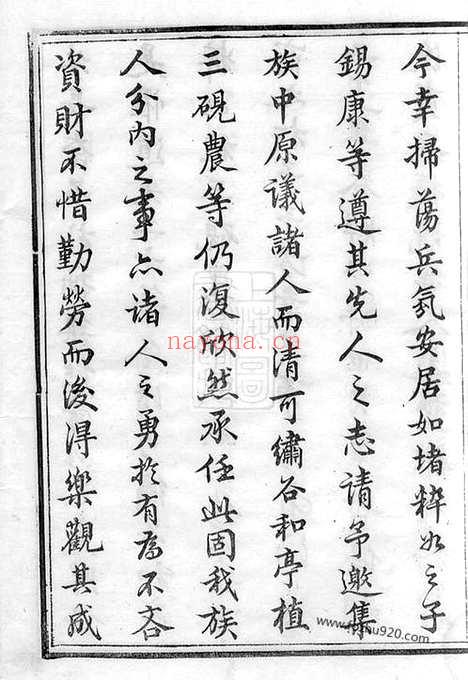 今幸掃蕩兵氛安居如堵粹如之子
錫康等遵其先人之志請予邀集
族中原議諸人而清可繡谷和亭植
三硯農等仍復欣然承任此固我族
人分內之事亦諸人之勇於有為不吝
資財不惜勤勞而後得樂觀其成
nayona.cn
920.com